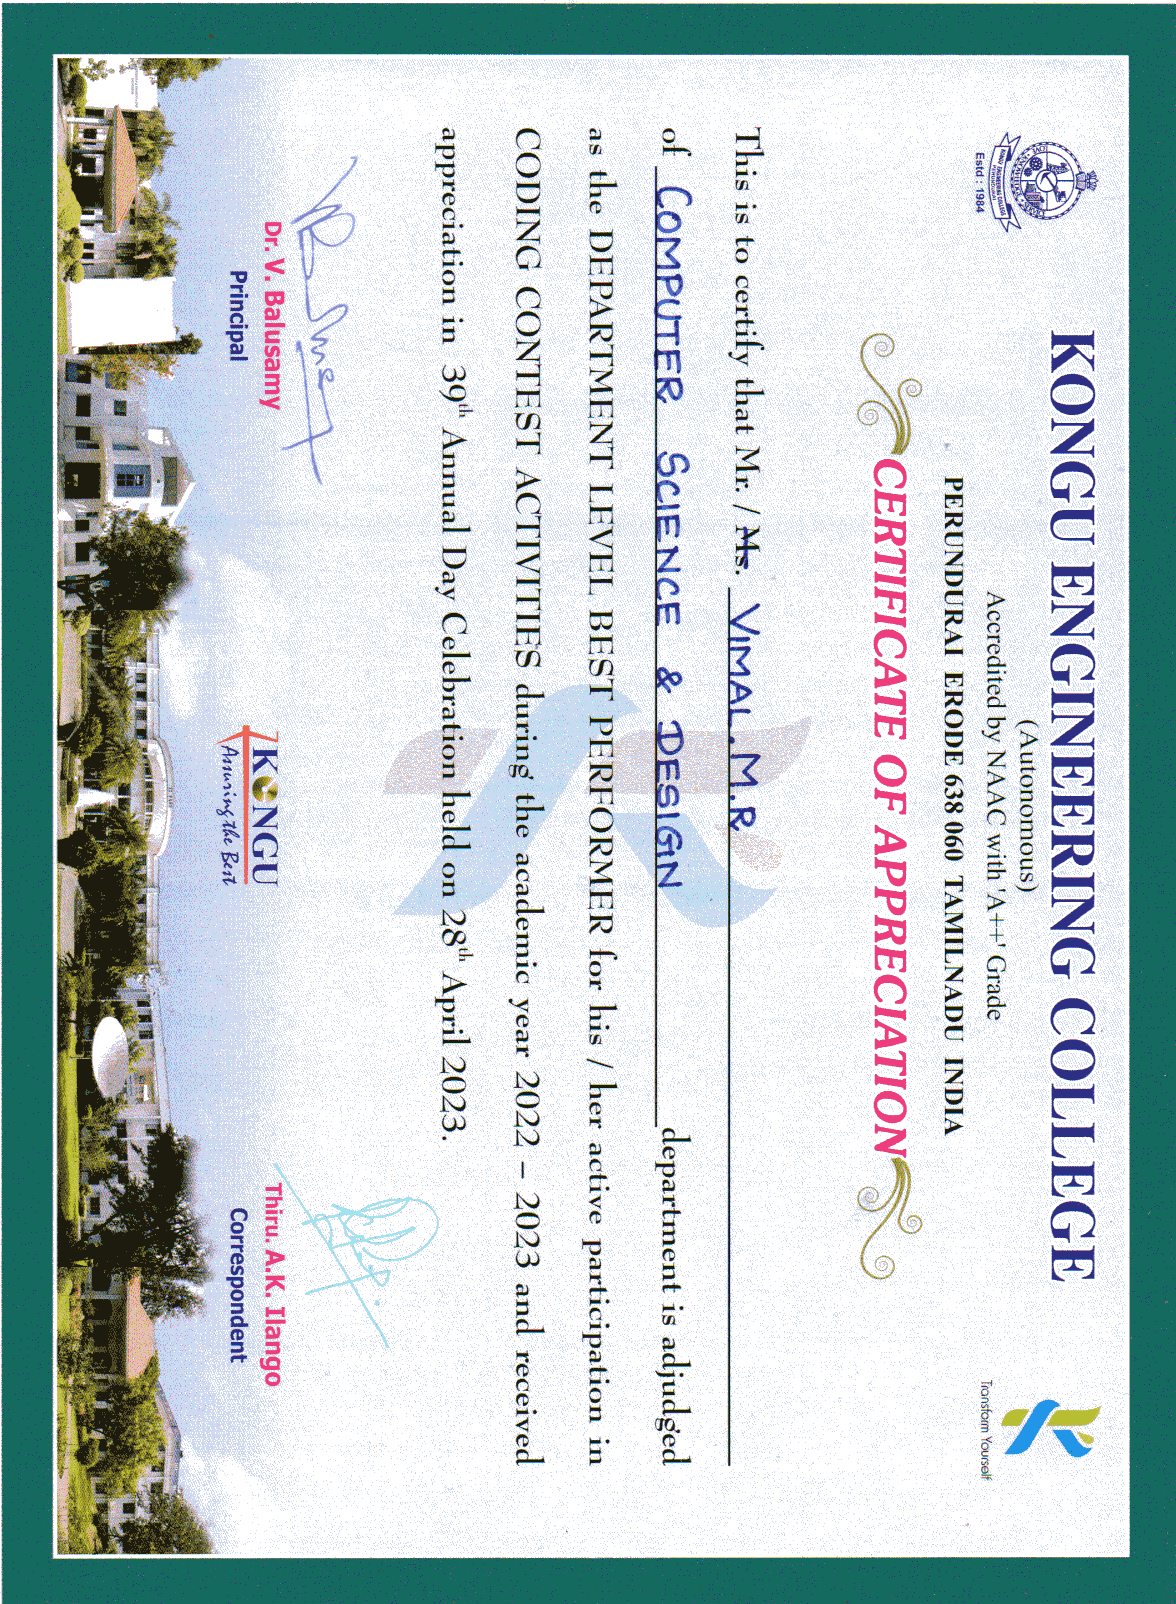 KONGU ENGINEERING COLLEGE
(Autonomous)
Accredited by NAAC with 'A++' Grade
PERUNDURAI ERODE 638 060 TAMILNADU INDIA
KONGU ENGINEERING COLLEGE
PERUNDURAI
Estd : 1984
Transform Yourself
CERTIFICATE OF APPRECIATION
This is to certify that Mr. / Ms. VIMAL.M.R
of COMPUTER SCIENCE & DESIGN department is adjudged
as the DEPARTMENT LEVEL BEST PERFORMER for his / her active participation in
CODING CONTEST ACTIVITIES during the academic year 2022 – 2023 and received
appreciation in 39th Annual Day Celebration held on 28th April 2023.
Dr. V. Balusamy
Principal
KONGU
Assuring the Best
Thiru. A.K. Ilango
Correspondent